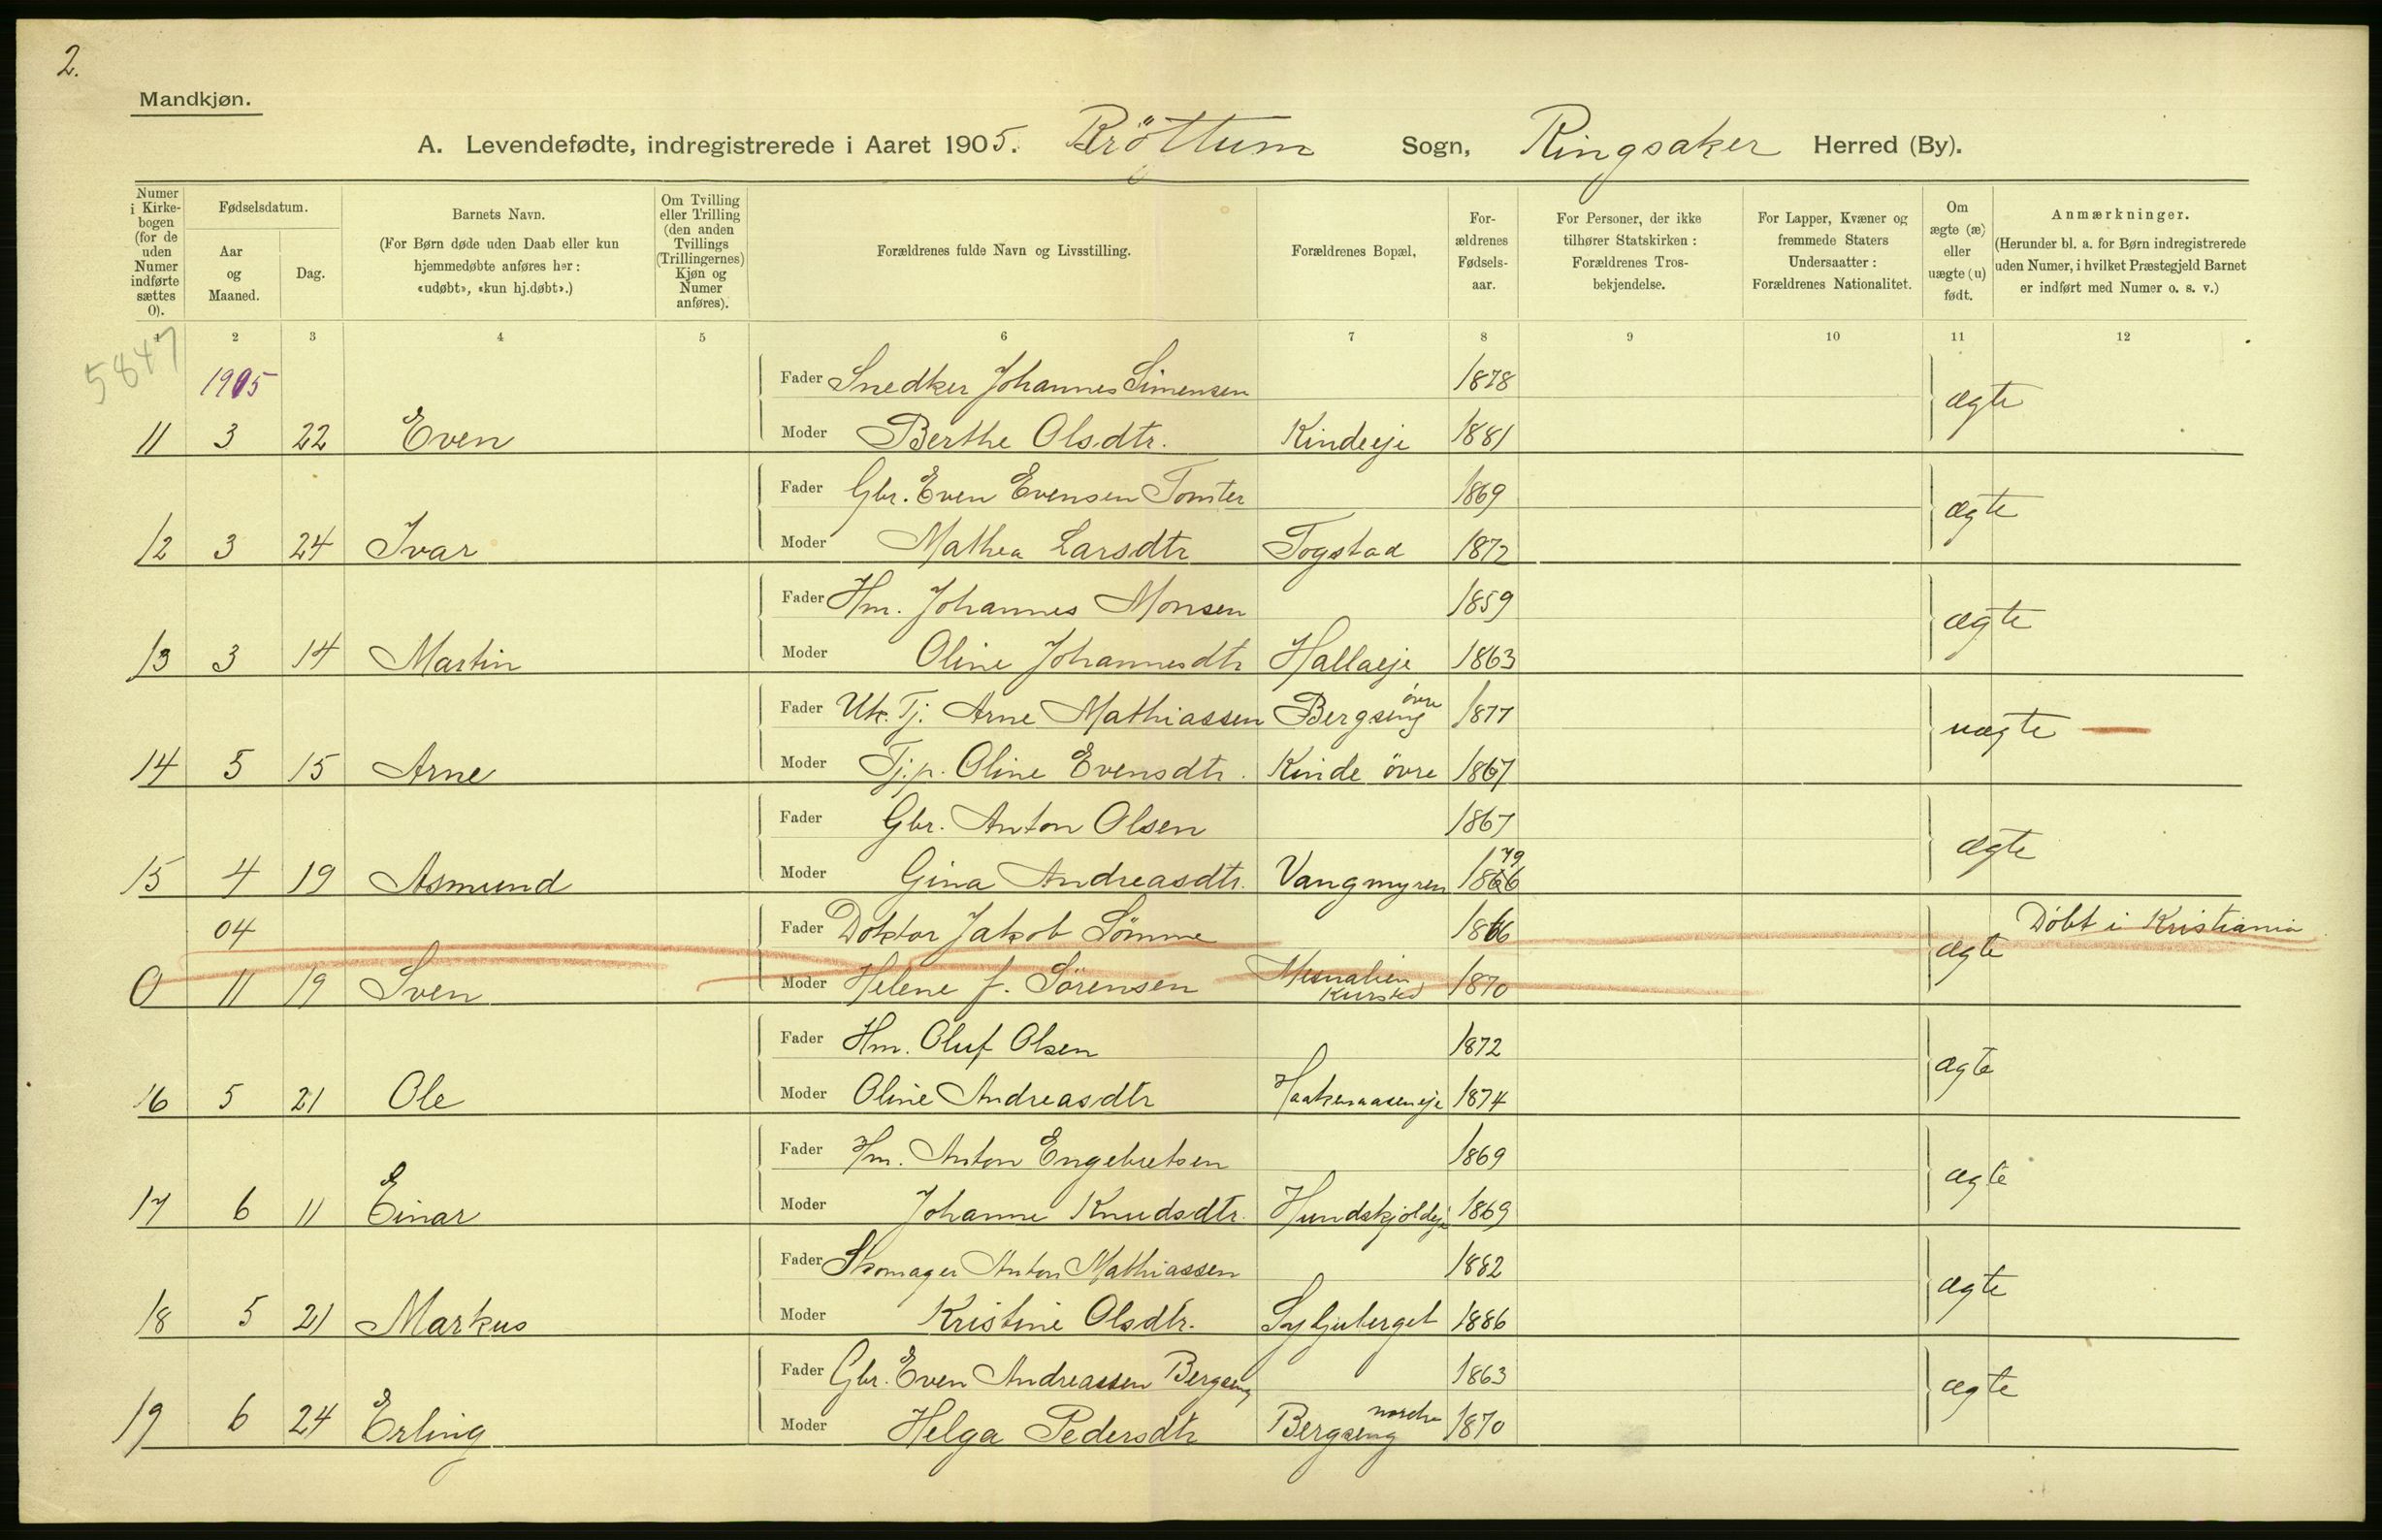 2.
Mandkjøn.
A. Levendefødte, indregistrerede i Aaret 1905. Bröttum Sogn, Ringsaker Herred (By).
Numer i Kirkebogen (for de uden Numer indførte sættes 0).
Fødselsdatum.
Aar og Maaned.
Dag.
Barnets Navn.
(For Børn døde uden Daab eller kun hjemmedøbte anføres her: «udøbt», «kun hj.døbt».)
Om Tvilling eller Trilling (den anden Tvillings (Trillingernes) Kjøn og Numer anføres).
Forældrenes fulde Navn og Livsstilling.
Forældrenes Bopæl,
Forældrenes Fødselsaar.
For Personer, der ikke tilhører Statskirken: Forældrenes Trosbekjendelse.
For Lapper, Kvæner og fremmede Staters Undersaatter: Forældrenes Nationalitet.
Om ægte (æ) eller uægte (u) født.
Anmærkninger.
(Herunder bl. a. for Børn indregistrerede uden Numer, i hvilket Præstegjeld Barnet er indført med Numer o. s. v.)
1 2 3 4 5 6 7 8 9 10 11 12
5847
1905 Fader Snedker Johannes Simensen 1878 ægte
11 3 22 Even Moder Berthe Olsdtr. Kindeeje 1881
Fader Gbr. Even Evensen Tomter 1869 ægte
12 3 24 Ivar Moder Mathea Larsdtr Togstad 1872
Fader Hm. Johannes Monsen 1859 ægte
13 3 14 Martin Moder Oline Johannesdtr Hallaeje 1863
Fader Uk. Tj. Arne Mathiassen Bergseng övre 1877 uægte —
14 5 15 Arne Moder Tj.p. Oline Evensdtr. Kinde övre 1867
Fader Gbr. Anton Olsen 1867 ægte
15 4 19 Asmund Moder Gina Andreasdtr. Vangmyren 1866 79
04 Fader Doktor Jakob Sömme 1866 ægte Döbt i Kristiania
0 11 19 Sven Moder Helene f. Sörensen Mesnalien Kursted 1870
Fader Hm. Oluf Olsen 1872 ægte
16 5 21 Ole Moder Oline Andreasdtr Haakenaaseneje 1874
Fader Hm. Anton Engebretsen 1869 ægte
17 6 11 Einar Moder Johanne Knudsdtr. Hundskjoldeje 1869
Fader Skomager Anton Mathiassen 1882 ægte
18 5 21 Markus Moder Kristine Olsdtr. Syljuberget 1886
Fader Gbr. Even Andreassen Bergseng 1863 ægte
19 6 24 Erling Moder Helga Pedersdtr Bergseng nordre 1870